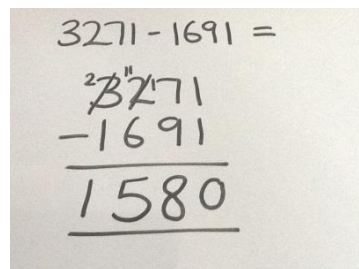 3271-1691 =
² 3 ¹¹ 2 ¹ 7 1
-1691
1580